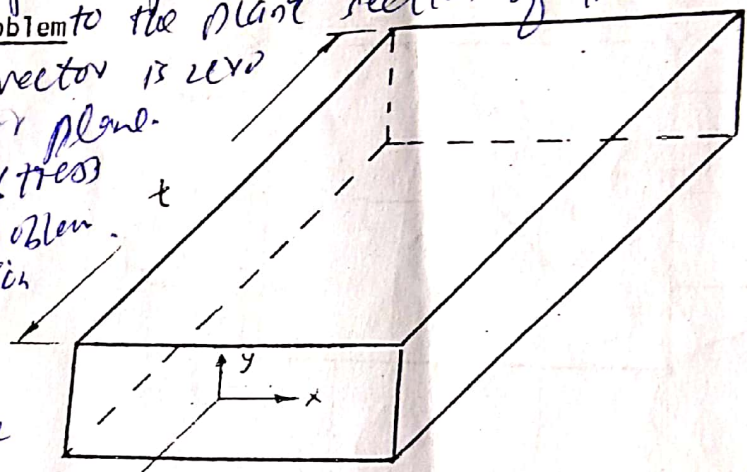 oblem to the plane section of
vector is zero
plane.
stress
oblem.
t
y
x